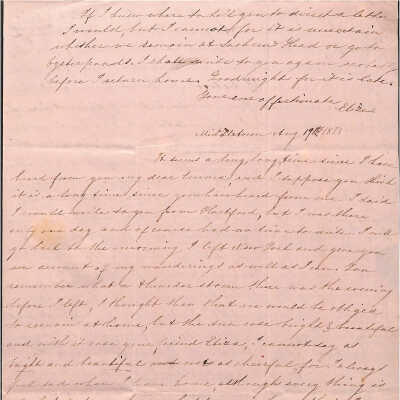 If I knew where to tell you to direct a letter
I would, but I cannot for it is uncertain
whether we remain at Sachem's Head or go to
I shall write to you again
before I return home. Goodnight for it is late.
Your ever affectionate Eliza
Middletown Aug 19th
It seems a long, long time since I have
heard from you my dear and I suppose you think
it is a long time since you have heard from me. I said
I would write to you from Hartford, but I was there
only one day and of course had no time to write. I will
go back to the morning I left New York and give you
an account of my wanderings as well as I can. You
remember what a thunder storm there was the evening
before I left, I thought then that we would be obliged
to remain at home, but the sun rose bright & beautiful
and with it rose your friend Eliza, I cannot say as
bright and beautiful not as cheerful for I always
feel sad when I leave home, although every thing is